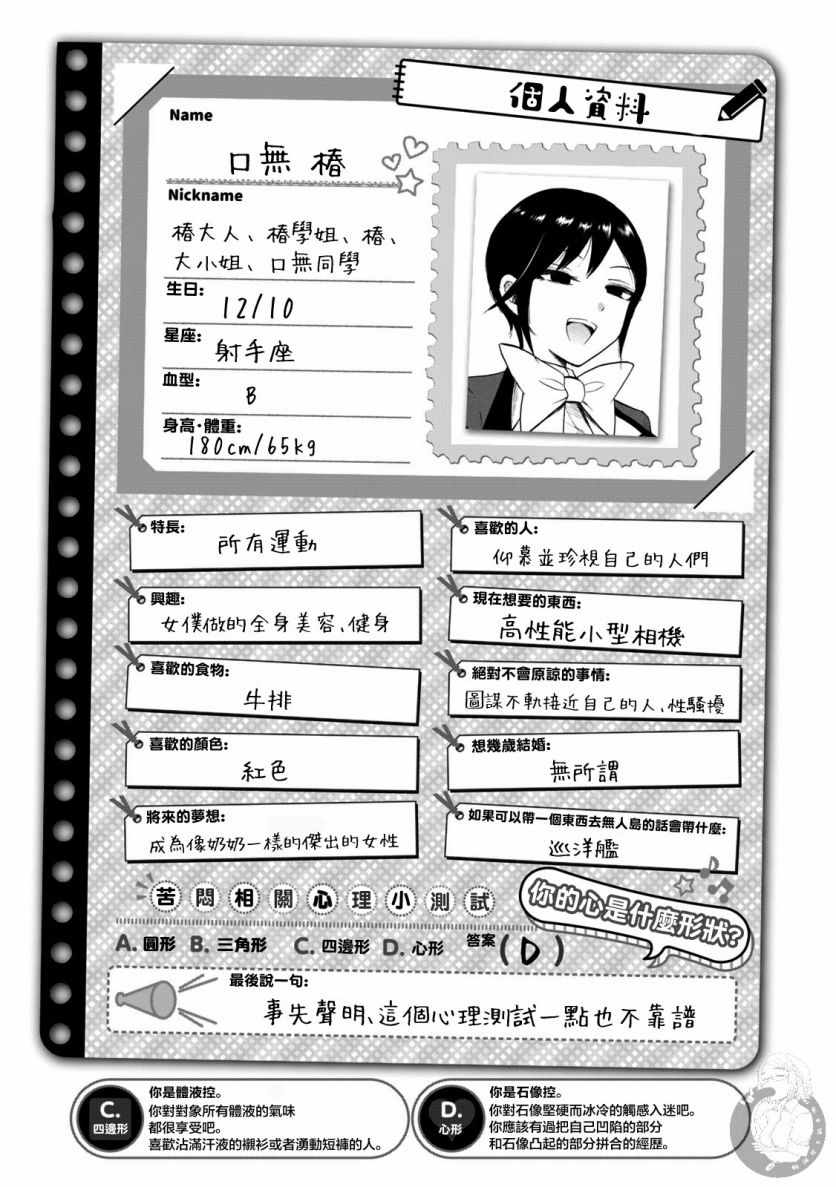 個人資料
Name
口無 椿
Nickname
椿大人、椿學姐、椿、
大小姐、口無同學
生日:
12/10
星座:
射手座
血型:
B
身高·體重:
180cm/65kg
特長:
所有運動
興趣:
女僕做的全身美容、健身
喜歡的食物:
牛排
喜歡的顏色:
紅色
將來的夢想:
成為像奶奶一樣的傑出的女性
喜歡的人:
仰慕並珍視自己的人們
現在想要的東西:
高性能小型相機
絕對不會原諒的事情:
圖謀不軌接近自己的人、性騷擾
想幾歲結婚:
無所謂
如果可以帶一個東西去無人島的話會帶什麼:
巡洋艦
苦悶相關心理小測試
你的心是什麼形狀?
A. 圓形 B. 三角形 C. 四邊形 D. 心形 答案(D)
最後說一句:
事先聲明、這個心理測試一點也不靠譜
C.
四邊形
你是體液控。
你對對象所有體液的氣味
都很享受吧。
喜歡沾滿汗液的襯衫或者湧動短褲的人。
D.
心形
你是石像控。
你對石像堅硬而冰冷的觸感入迷吧。
你應該有過把自己凹陷的部分
和石像凸起的部分拼合的經歷。